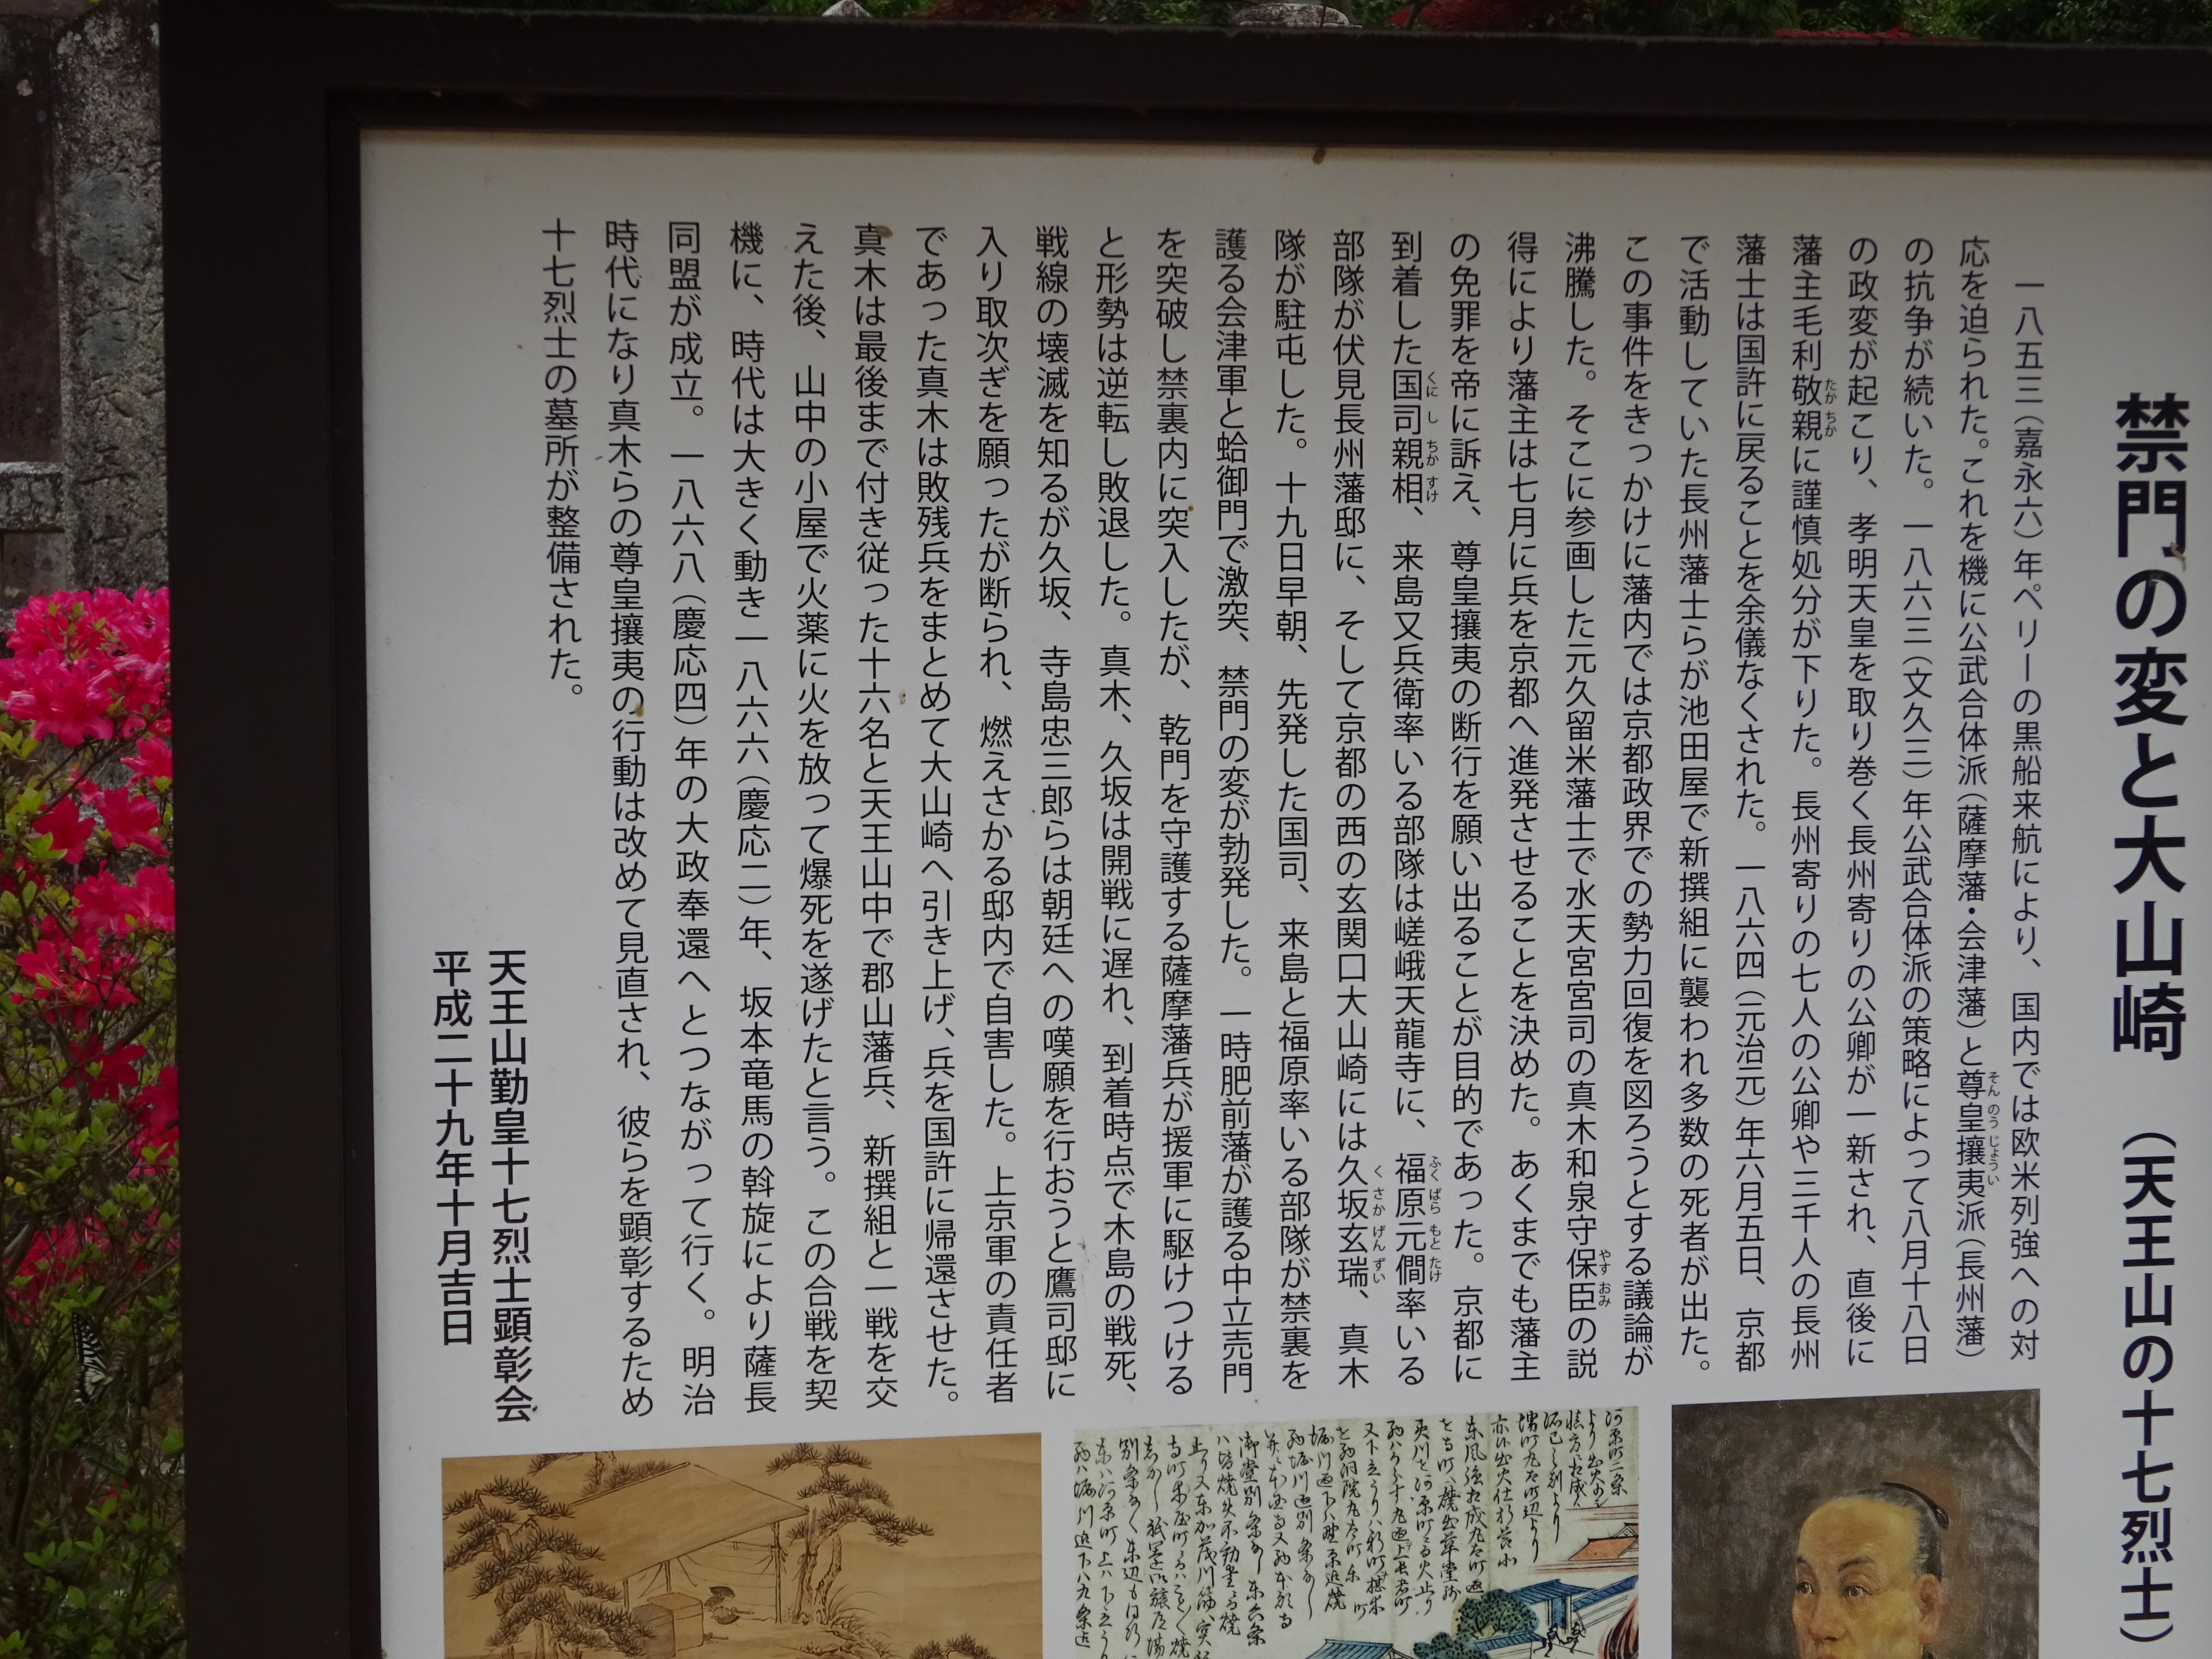 禁門の変と大山崎 （天王山の十七烈士）
一八五三（嘉永六）年ペリーの黒船来航により、国内では欧米列強への対
応を迫られた。これを機に公武合体派（薩摩藩・会津藩）と尊皇攘夷派（長州藩）
の抗争が続いた。一八六三（文久三）年公武合体派の策略によって八月十八日
の政変が起こり、孝明天皇を取り巻く長州寄りの公卿が一新され、直後に
藩主毛利敬親に謹慎処分が下りた。長州寄りの七人の公卿や三千人の長州
藩士は国許に戻ることを余儀なくされた。一八六四（元治元）年六月五日、京都
で活動していた長州藩士らが池田屋で新撰組に襲われ多数の死者が出た。
この事件をきっかけに藩内では京都政界での勢力回復を図ろうとする議論が
沸騰した。そこに参画した元久留米藩士で水天宮宮司の真木和泉守保臣の説
得により藩主は七月に兵を京都へ進発させることを決めた。あくまでも藩主
の免罪を帝に訴え、尊皇攘夷の断行を願い出ることが目的であった。京都に
到着した国司親相、来島又兵衛率いる部隊は嵯峨天龍寺に、福原元僴率いる
部隊が伏見長州藩邸に、そして京都の西の玄関口大山崎には久坂玄瑞、真木
隊が駐屯した。十九日早朝、先発した国司、来島と福原率いる部隊が禁裏を
護る会津軍と蛤御門で激突、禁門の変が勃発した。一時肥前藩が護る中立売門
を突破し禁裏内に突入したが、乾門を守護する薩摩藩兵が援軍に駆けつける
と形勢は逆転し敗退した。真木、久坂は開戦に遅れ、到着時点で木島の戦死、
戦線の壊滅を知るが久坂、寺島忠三郎らは朝廷への嘆願を行おうと鷹司邸に
入り取次ぎを願ったが断られ、燃えさかる邸内で自害した。上京軍の責任者
であった真木は敗残兵をまとめて大山崎へ引き上げ、兵を国許に帰還させた。
真木は最後まで付き従った十六名と天王山中で郡山藩兵、新撰組と一戦を交
えた後、山中の小屋で火薬に火を放って爆死を遂げたと言う。この合戦を契
機に、時代は大きく動き一八六六（慶応二）年、坂本竜馬の斡旋により薩長
同盟が成立。一八六八（慶応四）年の大政奉還へとつながって行く。明治
時代になり真木らの尊皇攘夷の行動は改めて見直され、彼らを顕彰するため
十七烈士の墓所が整備された。
天王山勤皇十七烈士顕彰会
平成二十九年十月吉日